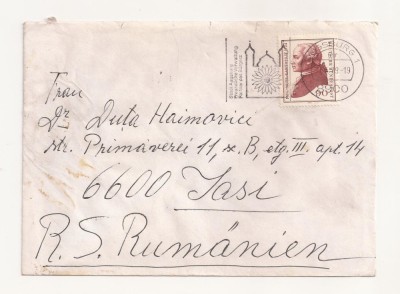 Frau
Dr Duta Haimovici
str. Primăverei 11, sc. B, etg. III. apt. 14
6600 Iasi
R. S. Rumänien